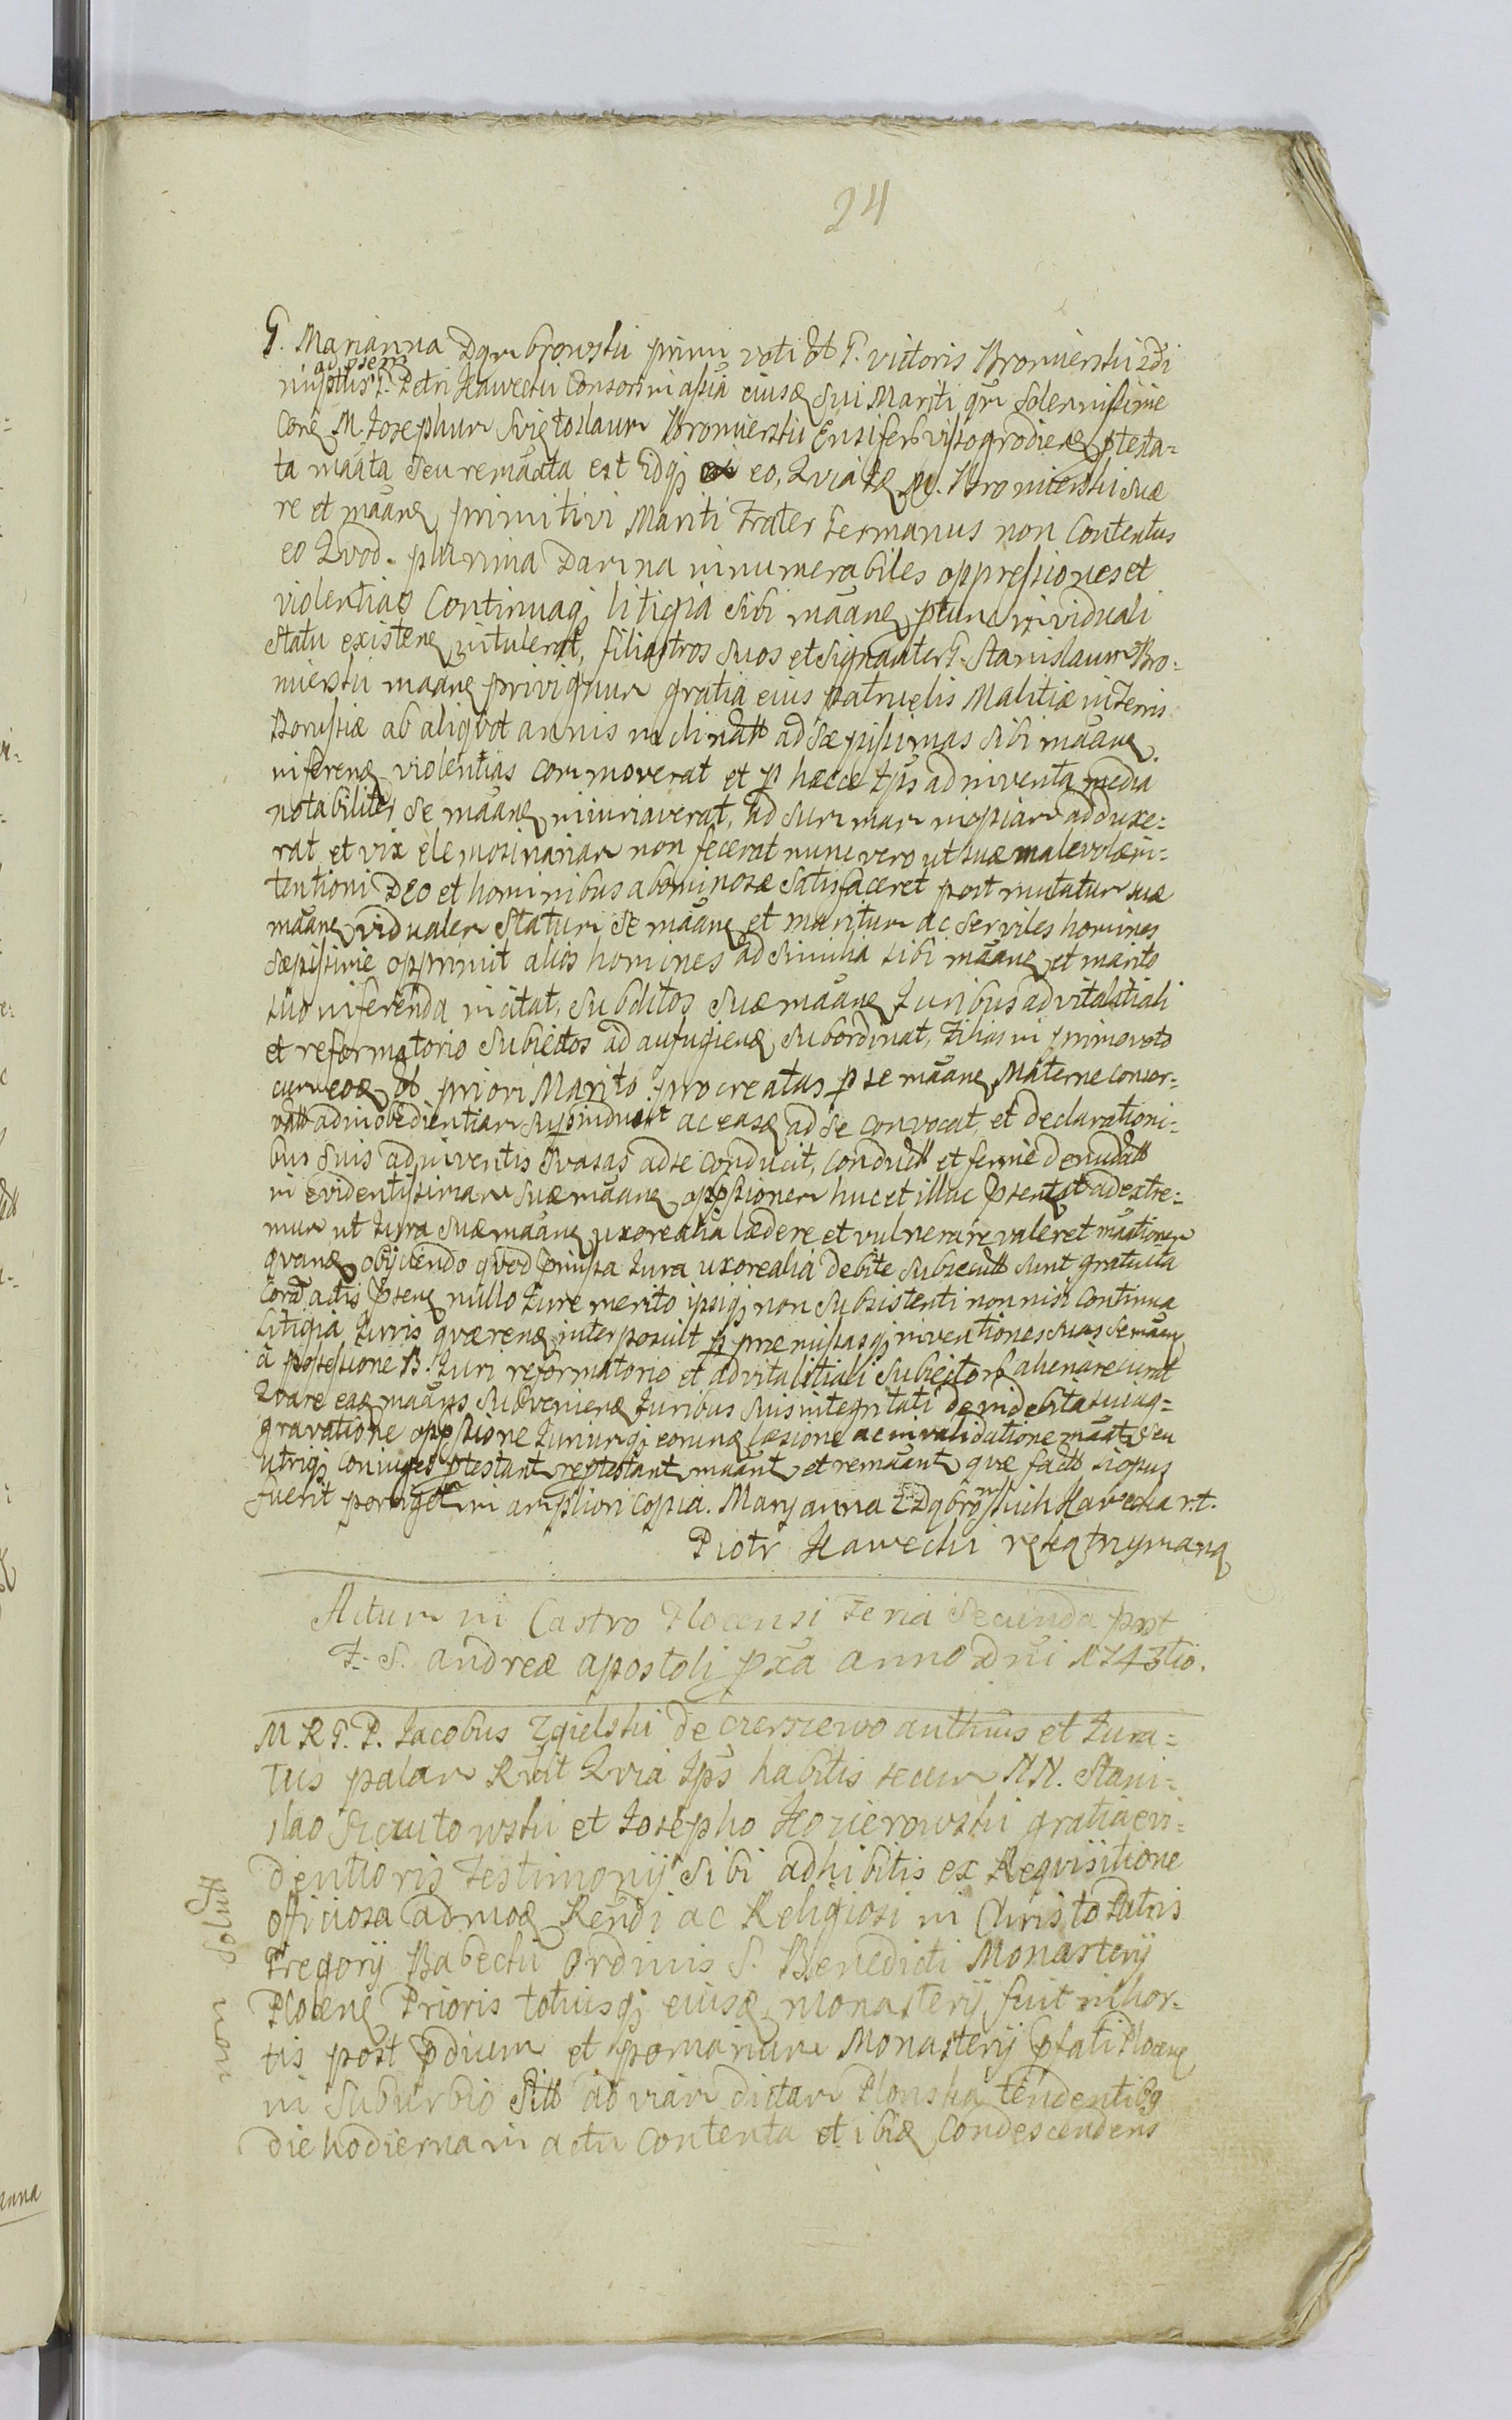 24
G. Marianna Dąmbrowski primi voti ol G. Victoris Bromierski 2di
ad psens
nuptus G. Petri Hawecki Consors in assia eiusq sui Mariti qm solennissime
Cone M. Josephum Swiętoslaum Bromierski Ensiferū Vissogrodieñ ptesta-
ta maata seu remaata est Idqj eo, Qvia Iq M. Bromierski suæ
re et maañq primitivi Mariti Frater Germanus non Contentus
eo Qvod plurima Damna innumerabiles oppressiones et
violentias Continuaqj litigia Sibi maanq ptunc in viduali
Statu existenq intulerat, filiastros suos et signaater G. Stanislaum Bro-
mierski maanq privignum gratia eius patruelis Malitiæ in Terris
Borussiæ ab aliqvot annis inclinatt ad sæpissimas Sibi maanq
inferenq violentias commoverat et p hæcce Ips adinventa media
notabiliter se maanq iniuriaverat, ad summam inopiam adduxe-
rat, et vix elemosinariam non fecerat nunc vero ut suæ malevolæ in-
tentioni Deo et hominibus abominosæ satisfaceret post mutatum suæ
maanq vidualem Statum Se maanq et maritum ac serviles homines
sæpissime opprimit alios homines ad similia sibi maanq et marito
suo inferenda incitat, subditos suæ maanq Juribus advitalitiali
et reformatorio subiectos ad aufugienq subordinat, Filias in primo voto
cum eoq ol priori Marito procreatas p se maanq Materne conser-
vatt ad inobedientiam supinducit ac easq ad se convocat, et declarationi-
bus suis adinventis svasas ad se conducit, conductt et ferme denudatt
in evidentissimam suæ maanq oppssionem huc et illuc psentat ad extre-
mum ut Jura suæ maanq uxorealia lædere et vulnerare valeret maationem
qvanq obijciendo qvod pmissa Jura uxorealia debite subsecutt sunt gratuita
Cora actis psenq nullo Jure merito ipsiqj non Subsistenti non nisi continua
Litigia Juris qværenq interposuit p præmissasqj inventiones suas se maanq
à possessione B. Juri reformatorio et advitalitiali subiectorū alienare curat
Qvare eaq maaus subvenienq Juribus suis integritati de indebita sui ag-
gravatione oppssione Juriumqj eorunq læsione ac invalidatione maati seu
utriqj coniuges ptestant reptestant maant et remaant qvæ factt si opus
fuerit porriget in ampliori copia. Maryanna z Dąbroskich Hawecka r.t.
Piotr Hawecki ręką trzymaną
Actum in Castro Plocensi Feria Secunda post
F. S. Andreæ apostoli pxa anno Dni 1743tio.
M R G. P. Jacobus Zgielski de Czerszewo authus et Jura-
tus palam Rvit Qvia Ips habitis secum NN. Stani-
slao Szczutowski et Josepho Kozierowski gratia evi-
dentioris Testimonij Sibi adhibitis ex Reqvisitione
officiosa admoq Rendi ac Religiosi in Christo Patris
Gregorij Babecki Ordinis S. Benedicti Monasterij
Plocenq Prioris totiusqj eiusq monasterij fuit in hor-
tis post pdium et pomarium Monasterij pfati Plocenq
in Suburbio Sitt ad viam dictam Plonska tendentibq
die hodierna in actu contenta et ibiq Condescendens
non solvit